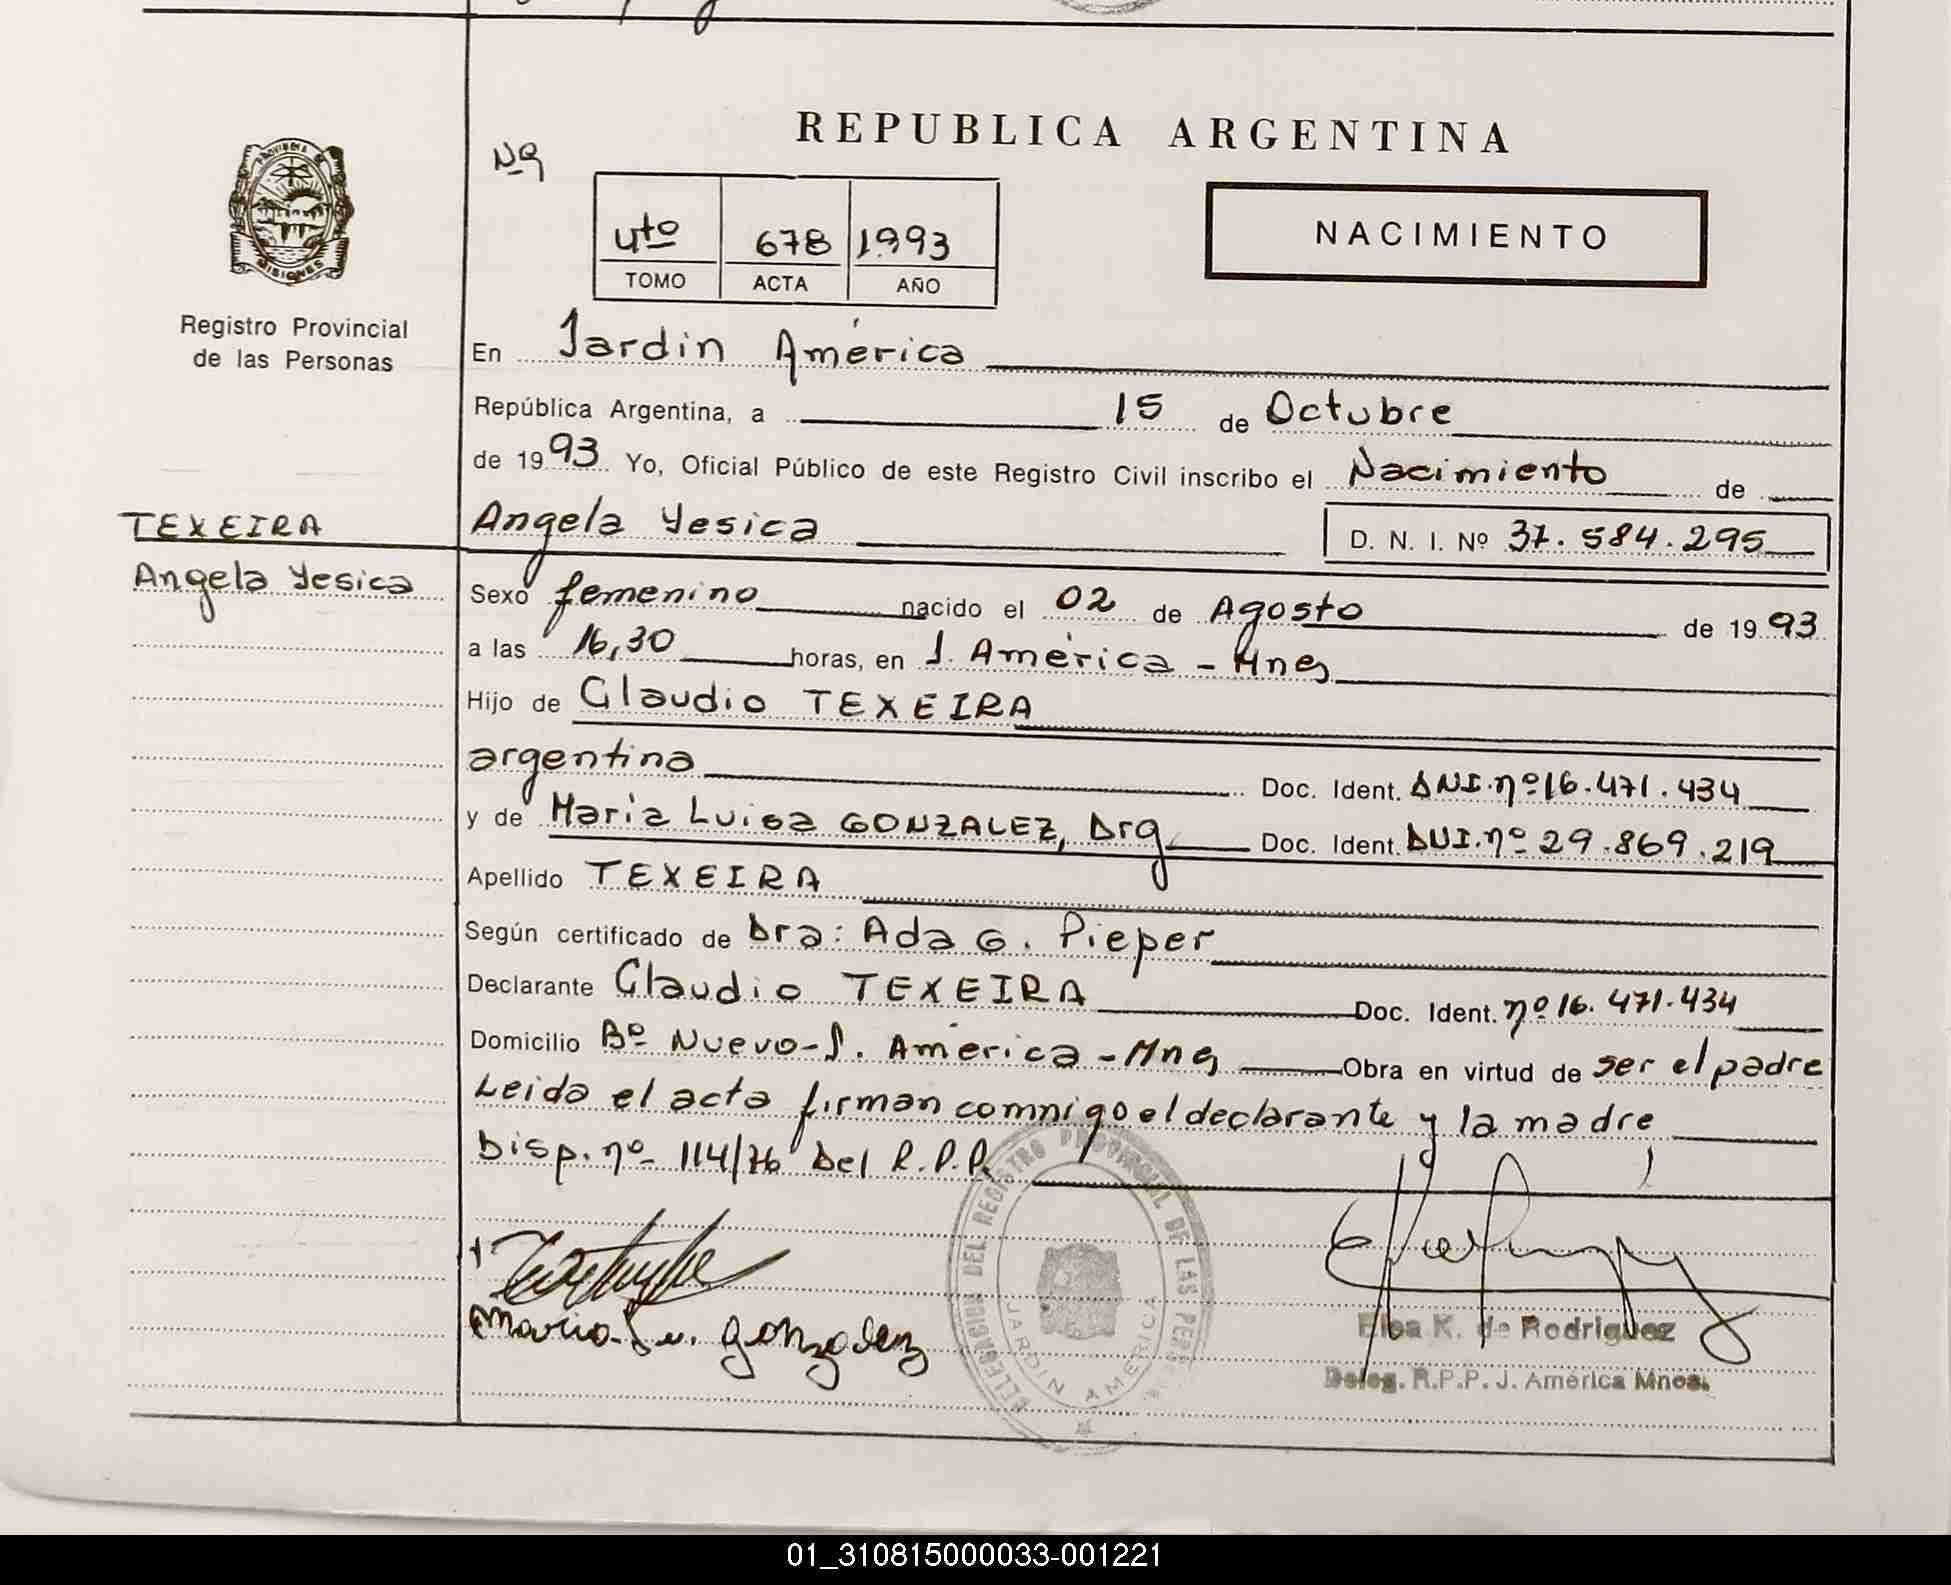 REPUBLICA ARGENTINA
Nº
4to 678 1.993
TOMO ACTA AÑO
NACIMIENTO
PROVINCIA DE
MISIONES
Registro Provincial
de las Personas
En Jardin América
República Argentina, a 15 de Octubre
de 1993 Yo, Oficial Público de este Registro Civil inscribo el Nacimiento de
TEXEIRA
Angela Yesica
Angela Yesica D. N. I. Nº 37.584.295
Sexo femenino nacido el 02 de Agosto de 1993
a las 16,30 horas, en J. América - Mnes
Hijo de Claudio TEXEIRA
argentina Doc. Ident. DNI.nº16.471.434
y de Maria Luisa GONZALEZ, Arg Doc. Ident. DUI.nº 29.869.219
Apellido TEXEIRA
Según certificado de Dra: Ada G. Pieper
Declarante Claudio TEXEIRA Doc. Ident. nº 16.471.434
Domicilio Bº Nuevo-J. América - Mnes Obra en virtud de ser el padre
Leida el acta firman comnigo el declarante y la madre
Disp. nº 114/76 Del R.P.P.
DELEGACION DEL REGISTRO PROVINCIAL DE LAS PERS
JARDIN AMERICA
Maria Lu. Gonzalez
Elba K. de Rodriguez
Deleg. R.P.P. J. América Mnes.
01_310815000033-001221